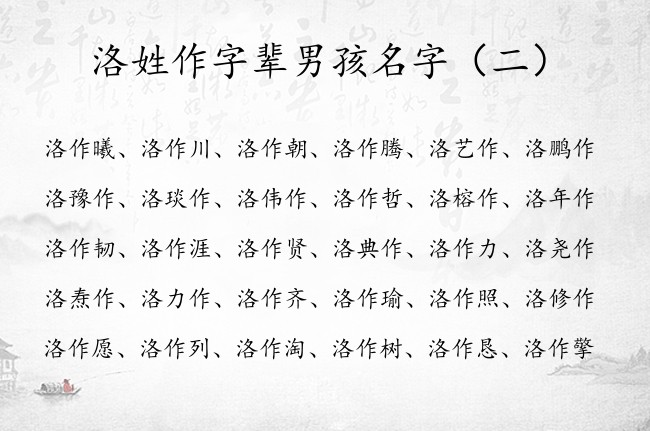 洛姓作字辈男孩名字（二）
洛作曦、洛作川、洛作朝、洛作腾、洛艺作、洛鹏作
洛豫作、洛琰作、洛伟作、洛作哲、洛榕作、洛年作
洛作韧、洛作涯、洛作贤、洛典作、洛作力、洛尧作
洛焘作、洛力作、洛作齐、洛作瑜、洛作照、洛修作
洛作愿、洛作列、洛作淘、洛作树、洛作恳、洛作擎